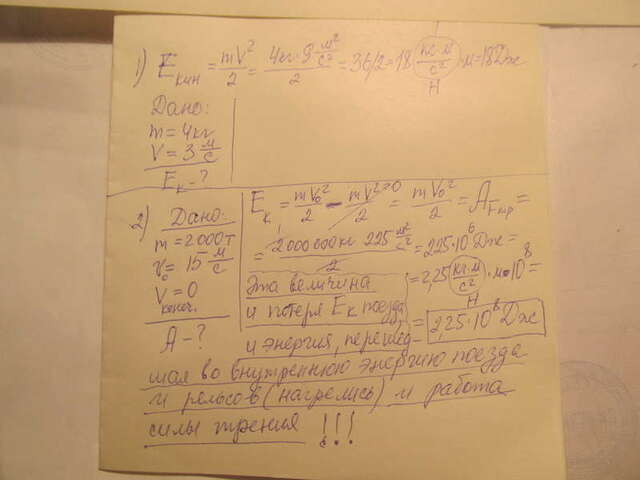 1) Eкин = mV²/2 = 4кг·9 м²/с² / 2 = 36/2 = 18 кг·м/с² · м = 18 Дж
Н
Дано:
m = 4кг
V = 3 м/с
Eк - ?
2) Дано:
m = 2000т
v₀ = 15 м/с
V = 0
конеч.
A - ?
Eк = mV₀²/2 - mV²/2 = 0 = mV₀²/2 = AFтр =
= 2000 000кг 225 м²/с² / 2 = 225·10⁶ Дж =
Эта величина = 2,25 кг·м/с² · м·10⁸ =
Н
и потеря Eк поезда = 2,25·10⁸ Дж
и энергия, перешед-
шая во внутреннюю энергию поезда
и рельсов (нагрелись) и работа
силы трения !!!